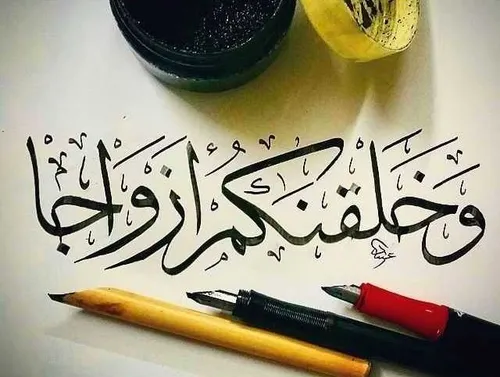 وَخَلَقنَكُم أَزوَاجا